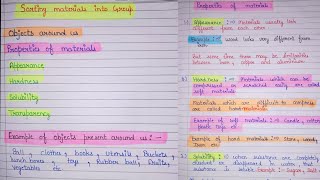 Sorting materials into Group
Objects around us
Properties of materials
Appearance
Hardness
Solubility
Transparency
Example of objects present around us :-
Ball, clothes, books, utensils, Buckets,
lunch boxes, toys, Rubber ball, fruits,
Vegetables etc
Properties of materials
Appearance :- Materials usually look
different from each other
wood looks very different from
But some time there may be similarities
between iron, copper and aluminium
Hardness :- Materials which can be
compressed or scratched easily are called
soft materials
Materials which are difficult to compress
are called hard materials
Example of soft materials :- Candle, cotton
etc
Example of hard materials :- Stone, wood,
Iron etc
Solubility :- when substance are completely
in water, than that
substance is soluble Example :- Sugar, Salt